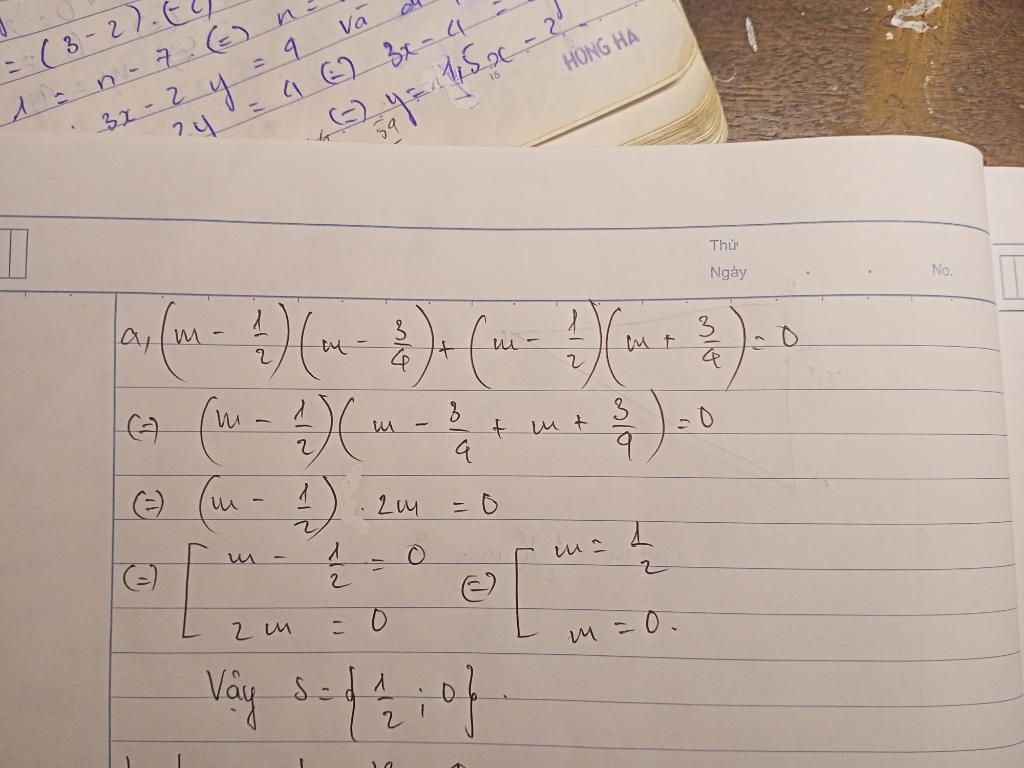 = (3 - 2).(-2)
1 = n - 7. (=) n =
3x - 2y = 4 và
2y = 4 (=) 3x - 4 =
(=) y = 1,5x - 2
HONG HA
Thứ
Ngày . . No.
a, (m - 1/2)(m - 3/4) + (m - 1/2)(m + 3/4) = 0
(=) (m - 1/2)(m - 3/4 + m + 3/4) = 0
(=) (m - 1/2) . 2m = 0
(=) [ m - 1/2 = 0 (=) [ m = 1/2
2m = 0 m = 0.
Vậy S = { 1/2 ; 0 } .